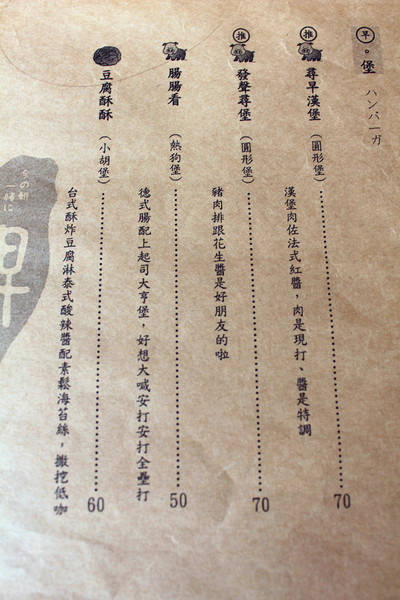 早。堡 ハンバーガ
推 尋早漢堡(圓形堡)……70
漢堡肉佐法式紅醬，肉是現打、醬是特調
推 發聲尋堡(圓形堡)……70
豬肉排跟花生醬是好朋友的啦
腸腸看(熱狗堡)……50
德式腸配上起司大亨堡，好想大喊安打安打全壘打
豆腐酥酥(小胡堡)……60
台式酥炸豆腐淋泰式酸辣醬配素鬆海苔絲，撒挖低咖
早